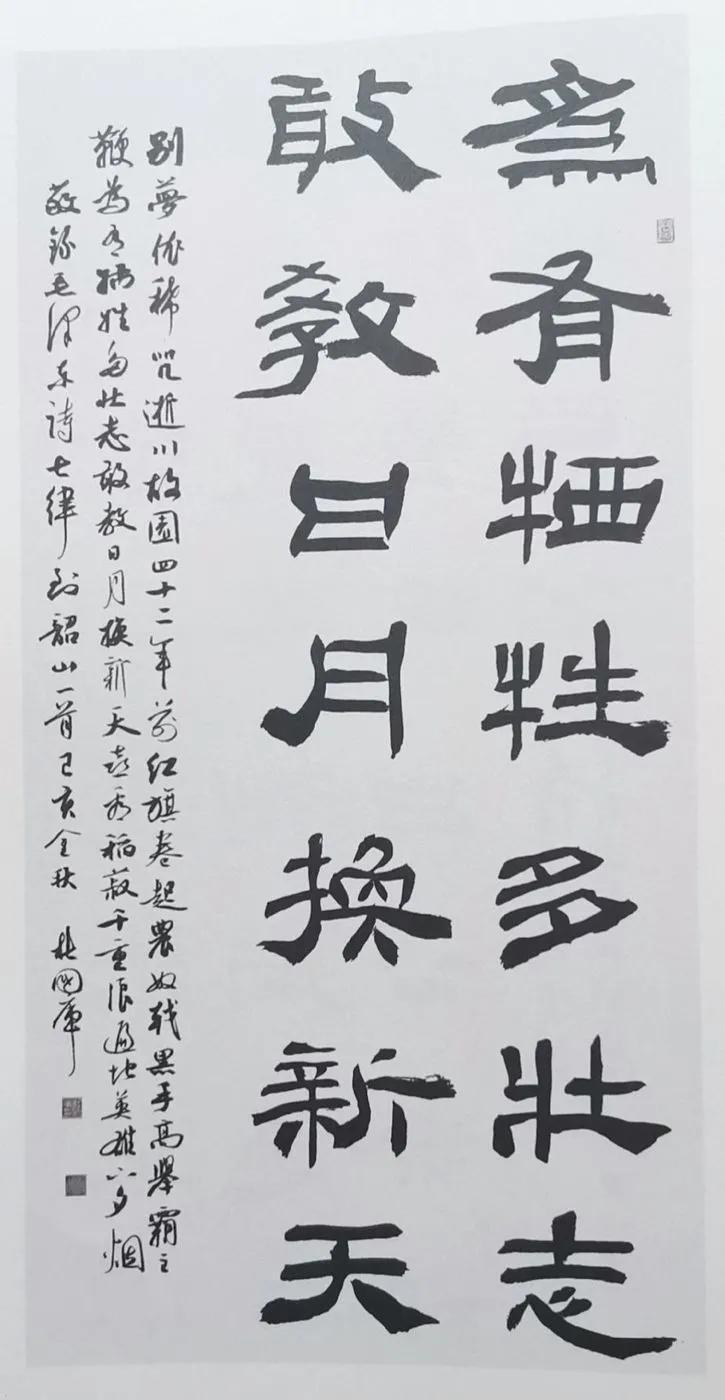 為有牺牲多壯志
敢教日月換新天
别夢依稀咒逝川故園四十二年前紅旗卷起農奴戟黑手高舉霸主
鞭為有牺牲多壯志敢教日月換新天喜看稻菽千重浪遍地英雄下夕烟
敬錄毛澤東詩七律到韶山一首己亥金秋 杜國庫